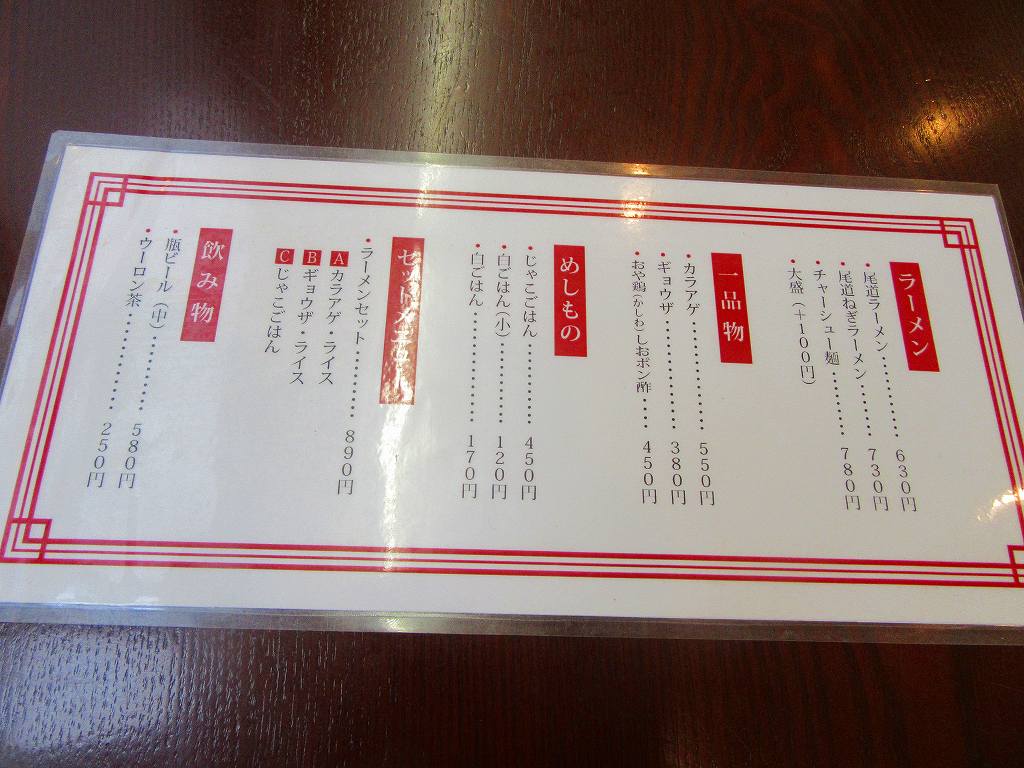 ラーメン
・尾道ラーメン………… 630円
・尾道ねぎラーメン…… 730円
・チャーシュー麺……… 780円
・大盛（＋100円）
一品物
・カラアゲ……………… 550円
・ギョウザ……………… 380円
・おや鶏（かしわ）しおポン酢…… 450円
めしもの
・じゃこごはん………… 450円
・白ごはん（小）……… 120円
・白ごはん……………… 170円
セットメニュー
・ラーメンセット……… 890円
A カラアゲ・ライス
B ギョウザ・ライス
C じゃこごはん
飲み物
・瓶ビール（中）……… 580円
・ウーロン茶…………… 250円